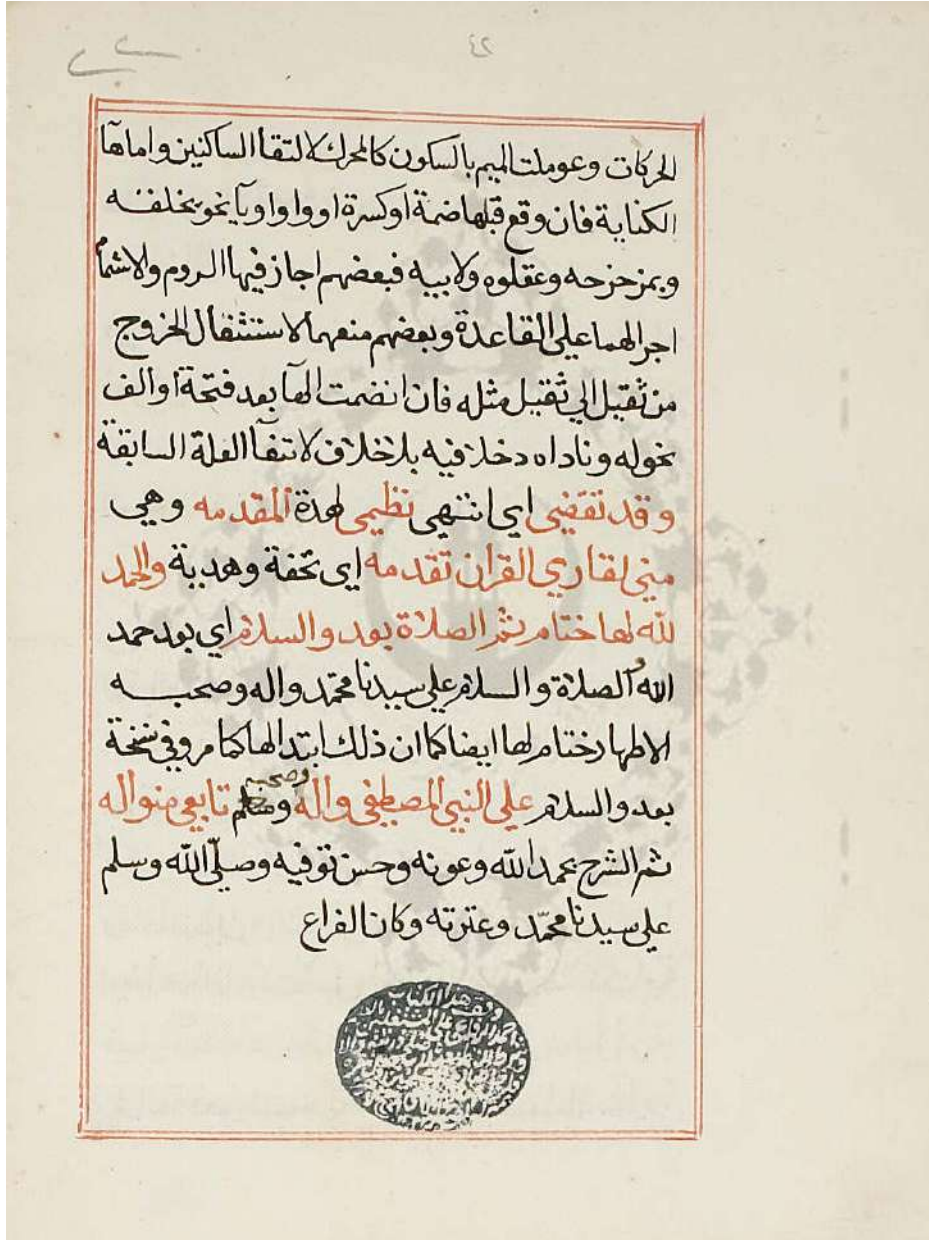 ٤٢
الحركات وعوملت الميم بالسكون كالمحرك لالتقاء الساكنين واما هآ
الكناية فان وقع قبلها ضمة او كسرة او واو او يآ نحو يخلفه
وبمزحزحه وعقلوه ولابيه فبعضهم اجاز فيها الروم ولاشمام
اجرالهما على القاعدة وبعضهم منعهما لاستثقال الخروج
من ثقيل الي ثقيل مثله فان انضمت الهآ بعد فتحة او الف
نحوله وناداه دخلا فيه بلا خلاف لانتفآ العلة السابقة
وقد تقضي اي انتهي نظمي لهذة المقدمه وهي
مني لقاري القران تقدمه اي تحفة وهدية والحمد
لله لها ختام ثم الصلاة بعد والسلام اي بعد حمد
الله والصلاة والسلام علي سيدنا محمد واله وصحبه
الاطهار ختام لها ايضا كما ان ذلك ابتدا لها كما مر وفي نسخة
بعد والسلام علي النبي المصطفي واله وصحبه تابعي منواله
ثم الشرح بحمد الله وعونه وحسن توفيه وصلي الله وسلم
علي سيدنا محمد وعترته وكان الفراع
وقف هذا الكتاب